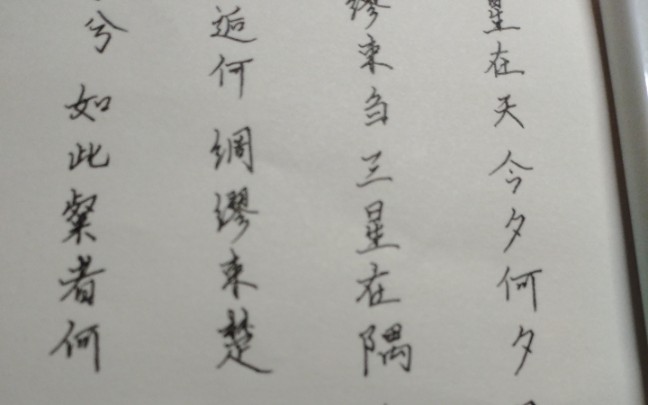 星在天 今夕何夕
缪束刍 三星在隅
逅何 绸缪束楚
兮 如此粲者何